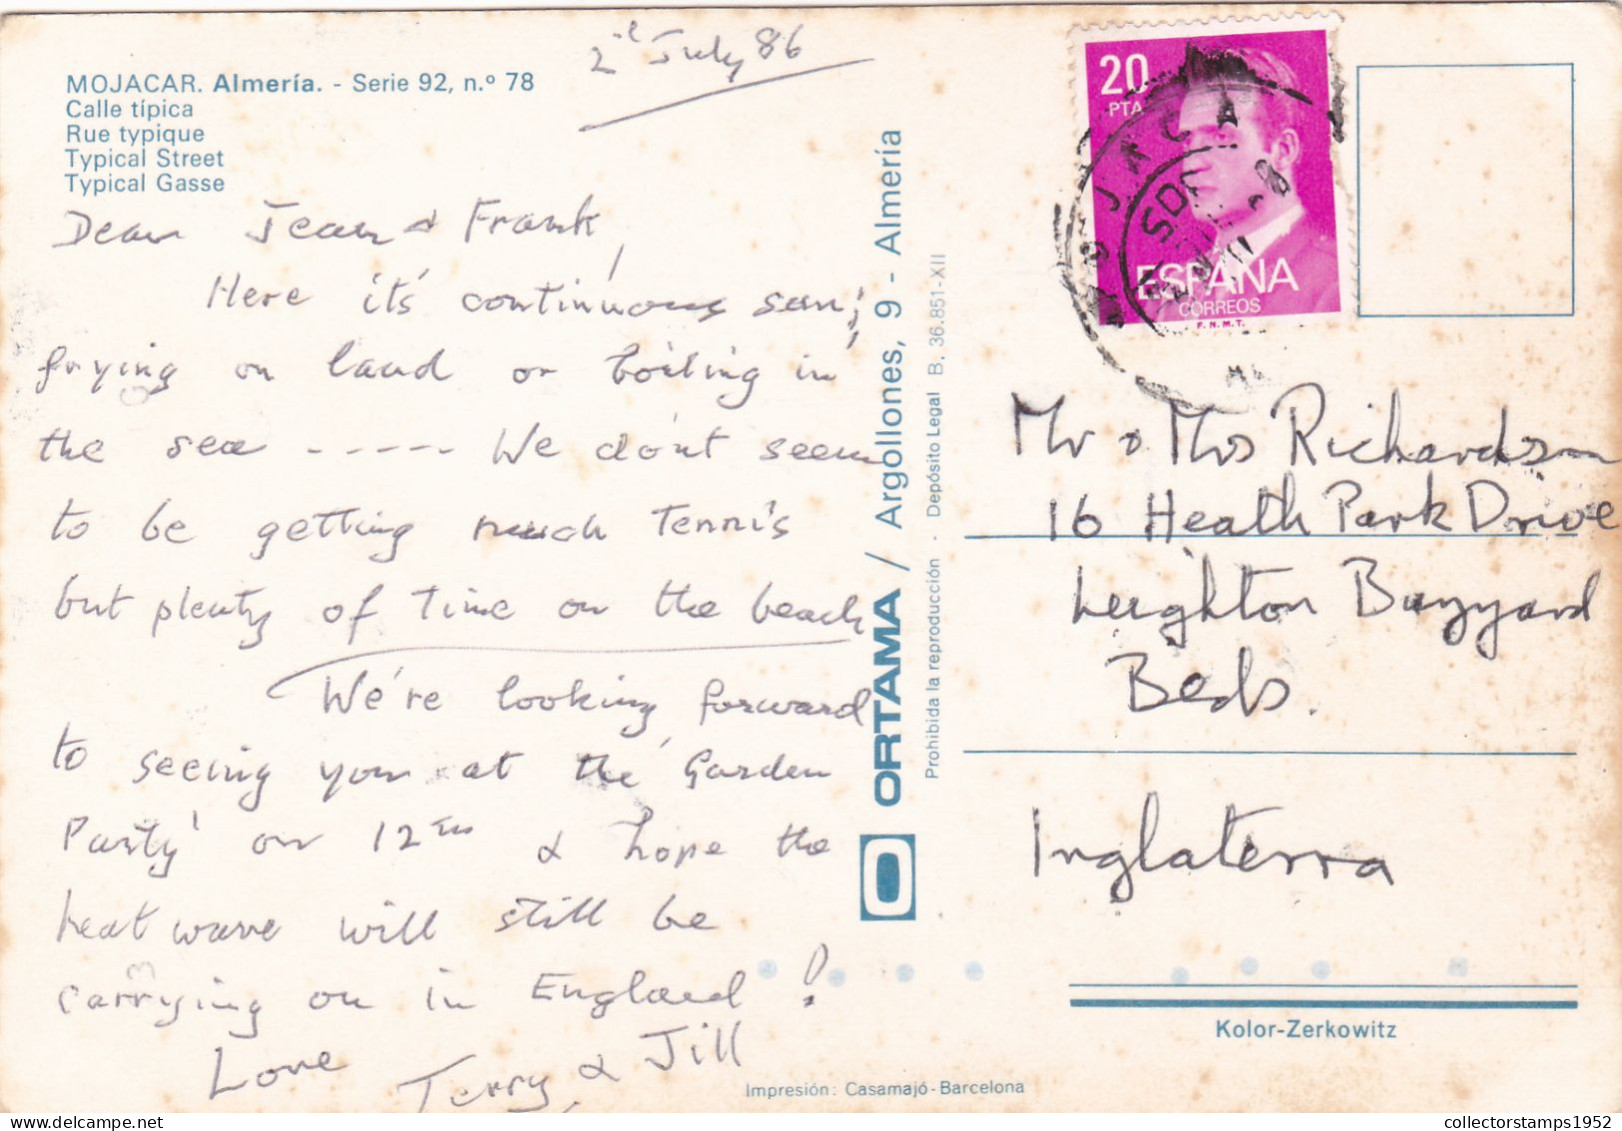 2d July 86
MOJACAR. Almería. - Serie 92, n.º 78
Calle típica
Rue typique
Typical Street
Typical Gasse
Dear Jean & Frank,
Here it's continuous sun;
frying on land or boiling in
the sea ----- We don't seem
to be getting much Tennis
but plenty of Time on the beach
We're looking forward
to seeing you at the 'Garden
Party' on 12th & hope the
heat wave will still be
carrying on in England!
Love Terry & Jill
ORTAMA / Argollones, 9 - Almería
Prohibida la reproducción - Depósito Legal B. 36.851-XII
20
PTA
ESPAÑA
CORREOS
F.N.M.T.
Mr & Mrs Richardson
16 Heath Park Drive
Leighton Buzzard
Beds.
Inglaterra
Kolor-Zerkowitz
Impresión: Casamajó-Barcelona
collectorstamps1952